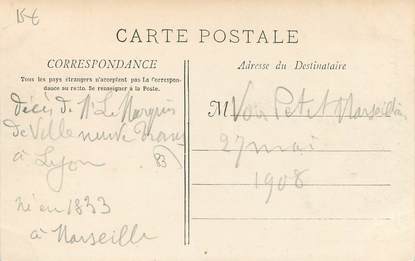 15€
CARTE POSTALE
CORRESPONDANCE
Tous les pays étrangers n'acceptent pas La Correspon-
dance au recto. Se renseigner à la Poste.
décès de Mr Le Marquis
de Villeneuve Trans
à Lyon 83)
né en 1833
à Marseille
Adresse du Destinataire
M Voir Petit Marseillais
27 mai
1908